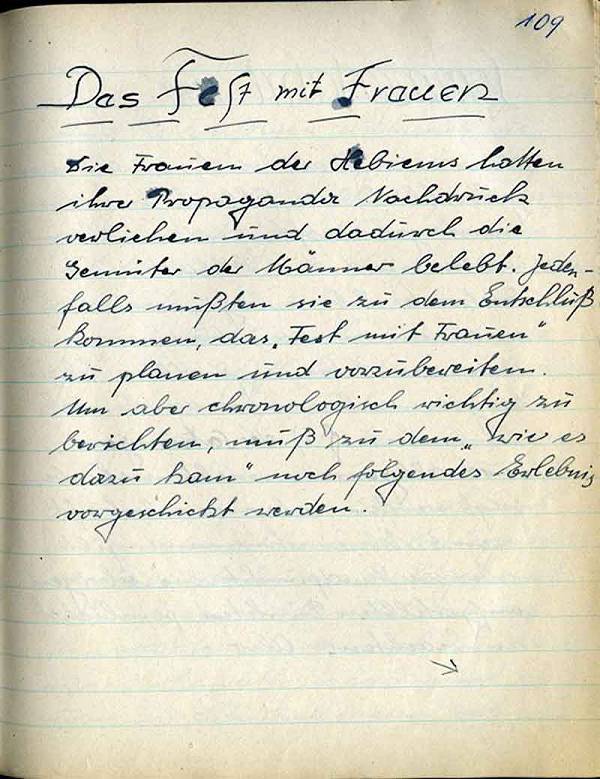 109
Das Fest mit Frauen
Die Frauen der Hebiems hatten
ihrer Propaganda Nachdruck
verliehen und dadurch die
Gemüter der Männer belebt. Jeden-
falls mußten sie zu dem Entschluß
kommen, das „Fest mit Frauen"
zu planen und vorzubereiten.
Um aber chronologisch richtig zu
berichten, muß zu dem „wie es
dazu kam" noch folgendes Erlebnis
vorgeschickt werden.